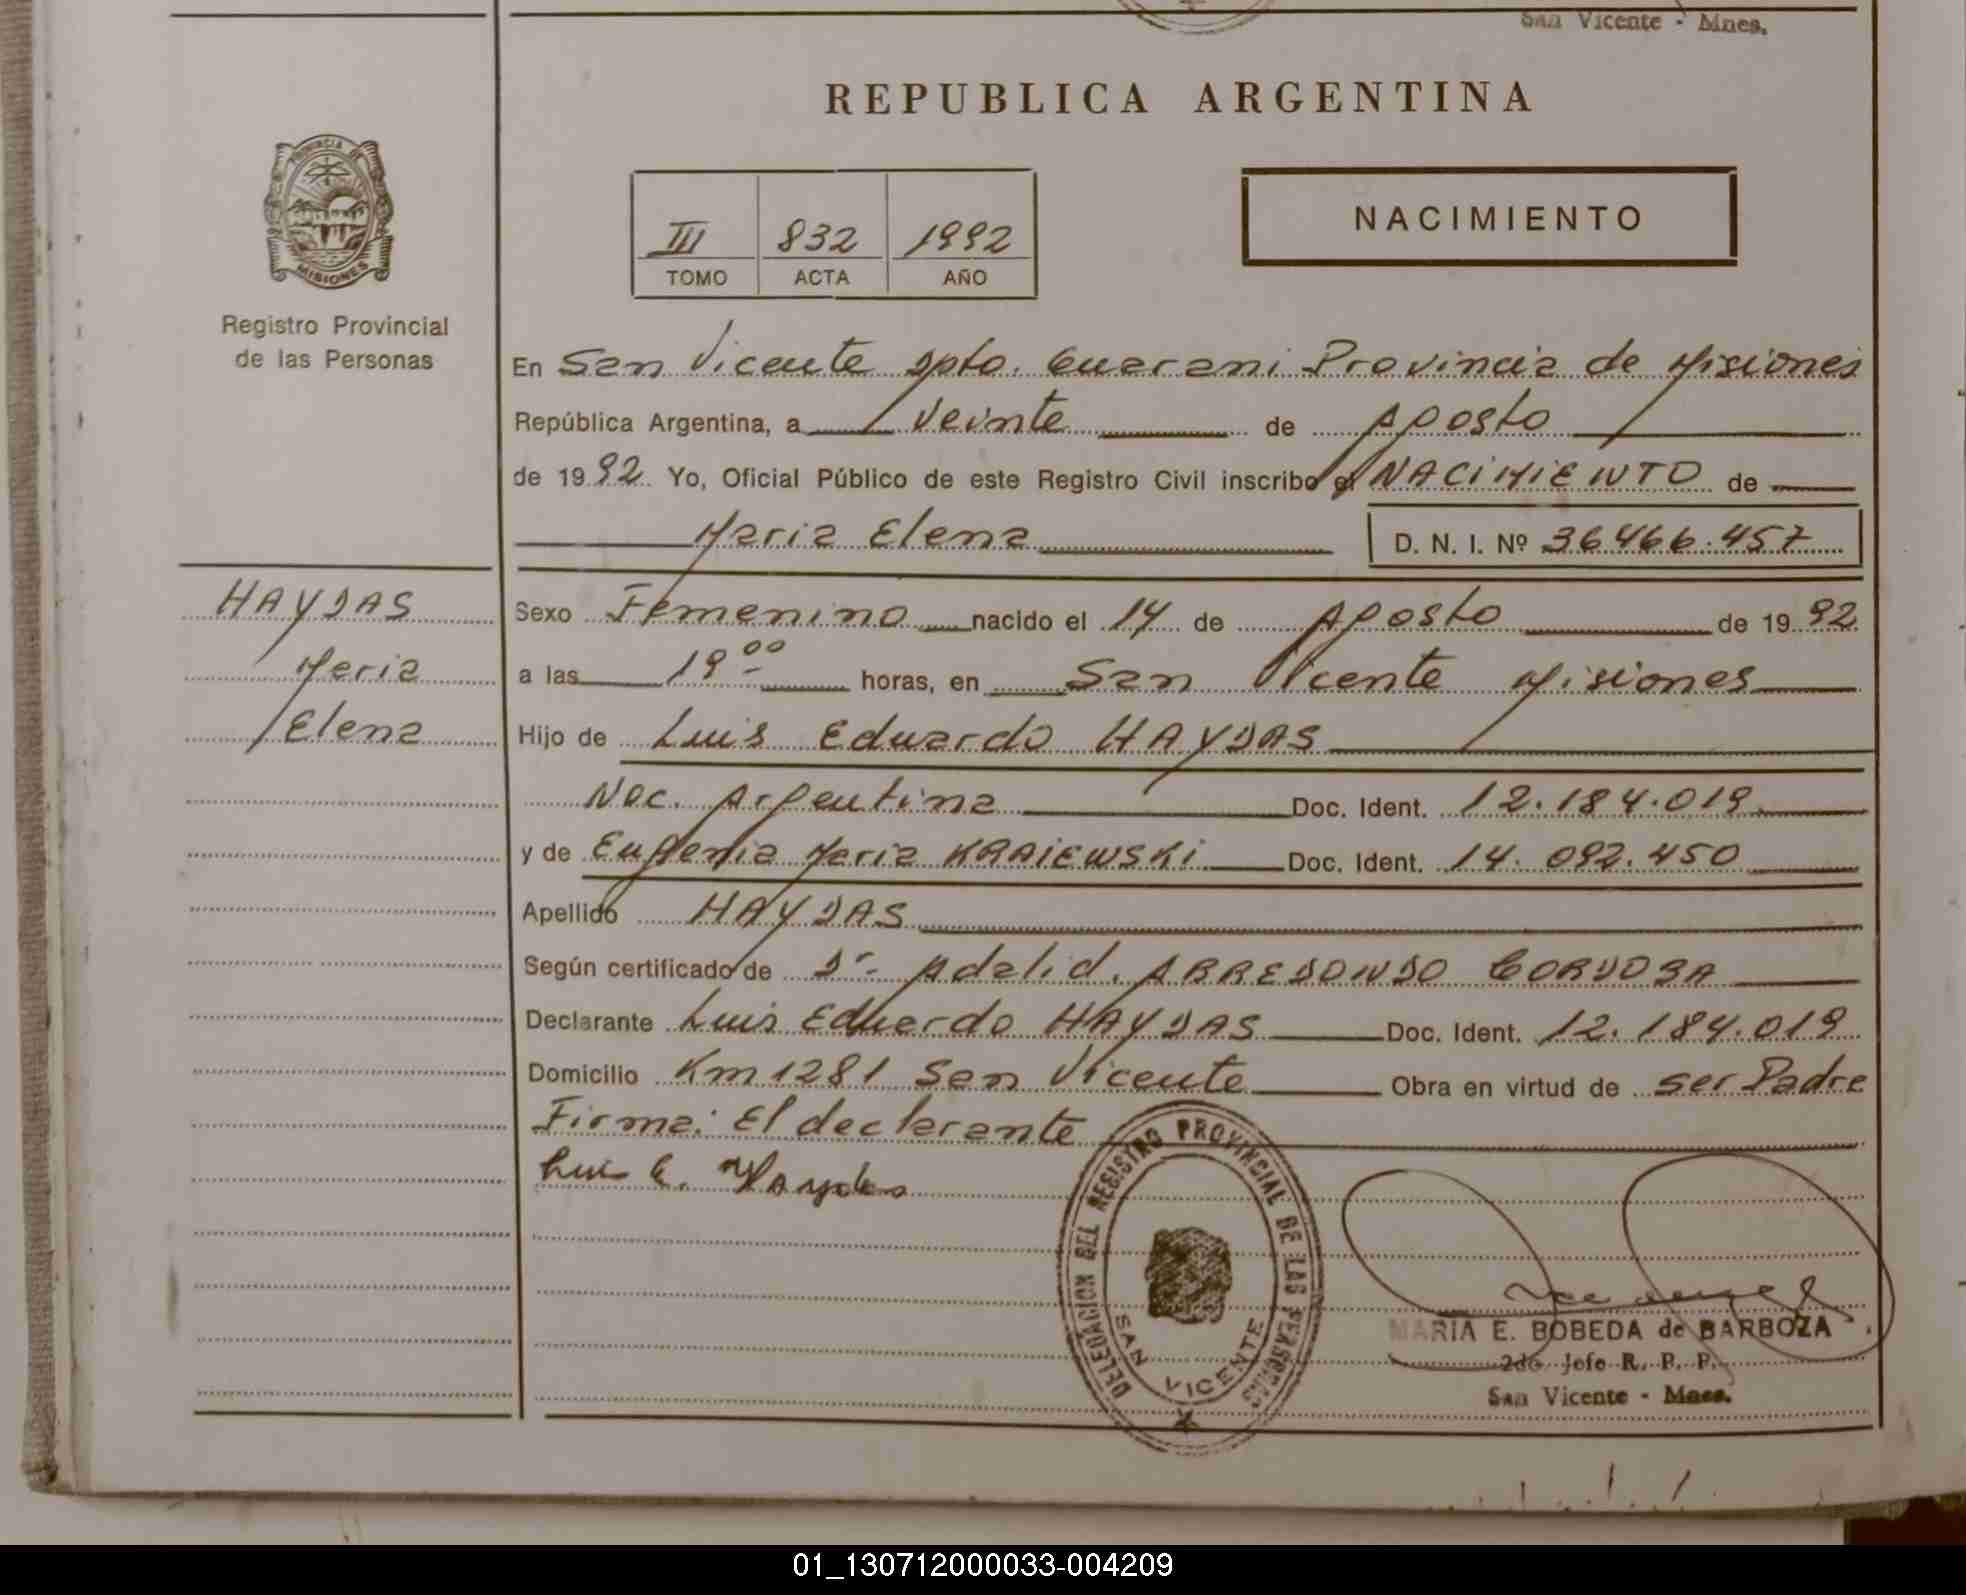 San Vicente - Mnes.
REPUBLICA ARGENTINA
PROVINCIA DE
MISIONES
Registro Provincial
de las Personas
III 832 1992
TOMO ACTA AÑO
NACIMIENTO
En San Vicente Dpto. Guarani Provincia de Misiones
República Argentina, a veinte de Agosto
de 1992. Yo, Oficial Público de este Registro Civil inscribo el NACIMIENTO de
Maria Elena D. N. I. Nº 36466.457
HAYDAS
Maria
Elena
Sexo Femenino nacido el 14 de Agosto de 1992
a las 19 00 horas, en San Vicente Misiones
Hijo de Luis Eduardo HAYDAS
Nac. Argentina Doc. Ident. 12.184.019
y de Eugenia Maria KRAIEWSKI Doc. Ident. 14.092.450
Apellido HAYDAS
Según certificado de Dr. Adalid. ARREDONDO CORDOBA
Declarante Luis Eduardo HAYDAS Doc. Ident. 12.184.019
Domicilio Km 1281 San Vicente Obra en virtud de ser Padre
Firma: El declarante
Luis E. Haydas
DELEGACION DEL REGISTRO PROVINCIAL DE LAS PERSONAS
SAN VICENTE
MARIA E. BOBEDA de BARBOZA
2do Jefe R. P. P.
San Vicente - Mnes.
01_130712000033-004209